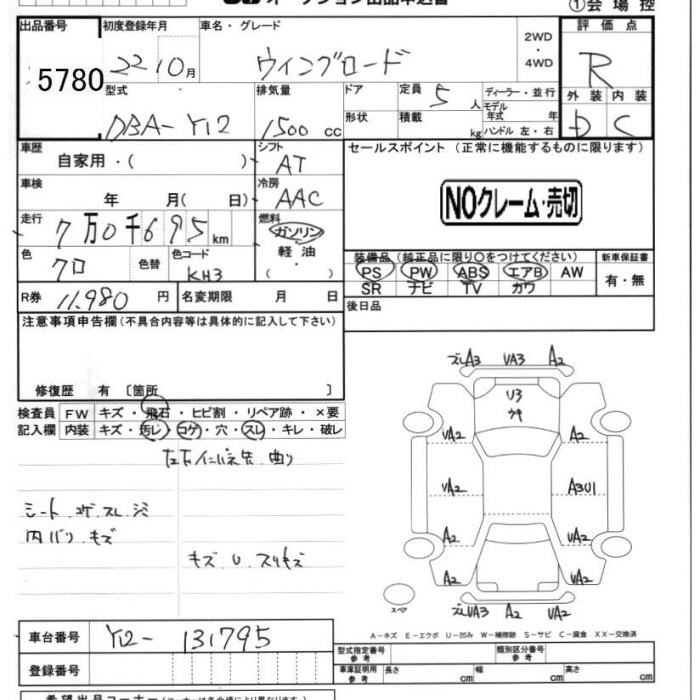 オークション出品申込書 ①会場控
出品番号 初度登録年月 車名・グレード 評価点
5780 22 10月 ウィングロード 2WD・4WD R
型式 排気量 ドア 定員 5人 ディーラー・並行 外装 内装
DBA-Y12 1500cc 形状 積載 kg モデル年式 年 ハンドル 左・右 D C
車歴 自家用・( ) シフト AT セールスポイント (正常に機能するものに限ります)
車検 年 月( 日) 冷房 AAC NOクレーム・売切
走行 7万0千695km 燃料 ガソリン・軽油・
色 クロ 色替 色コード KH3 装備品 (純正品に限り○をつけてください) 新車保証書
PS PW ABS エアB AW 有・無
SR ナビ TV カワ
R券 11,980円 名変期限 月 日 後日品
注意事項申告欄(不具合内容等は具体的に記入して下さい)
修復歴 有 〔箇所 〕
検査員 FW キズ・飛石・ヒビ割・リペア跡・×要
記入欄 内装 キズ・汚レ・コゲ・穴・スレ・キレ・破レ
シート コゲ スレ
内バリ キズ
キズ U スリキズ
ズレA3 VA3 A2
U3
VA2 A2
VA2 A3U1
A2 VA2
A2 A2
スペア ズレVA3 A2 VA2
A-キズ E-エクボ U-凹み W-補修跡 S-サビ C-腐食 XX-交換済
車台番号 Y12-131795
登録番号
型式指定番号 参考 類別区分番号 参考
車庫証明用 参考 長さ 幅 高さ cm cm cm
希望出品コーナー